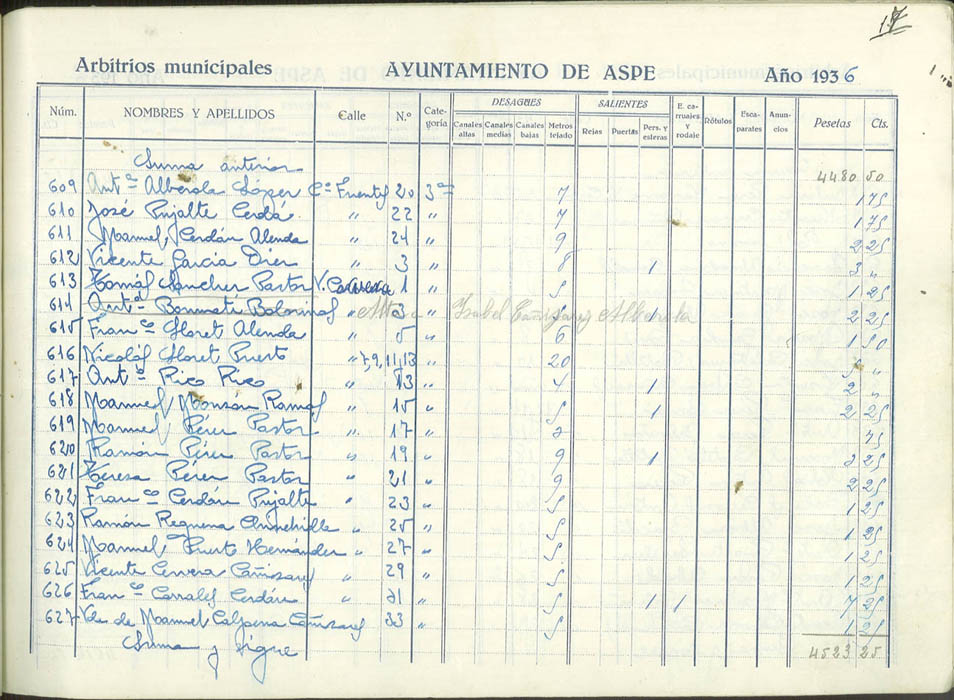 17
Arbitrios municipales AYUNTAMIENTO DE ASPE Año 1936
Núm. NOMBRES Y APELLIDOS Calle N.º Categoría DESAGÜES SALIENTES E. carruajes y rodaje Rótulos Escaparates Anuncios Pesetas Cts.
Canales altas Canales medias Canales bajas Metros telado Rejas Puertas Pers. y esteras
Suma anterior 4480 50
609 Antª Alberola López Cº Fuentes 20 3ª 7 1 75
610 José Pujalte Cerdá " 22 " 7 1 75
611 Manuel Cerdán Alenda " 24 " 9 2 25
612 Vicente García Díez " 3 " 8 1 3 "
613 Tomás Sánchez Pastor V. 1 " 5 1 25
614 Antª Bonmatí " 3 Isabel Cañizares Alberola 1 2 25
615 Franco Lloret Alenda " 5 " 6 1 50
616 Nicolás Lloret Puerto " 7, 9, 11, 13 20 5 "
617 Antº Rico Rico " 13 " 4 1 2 "
618 Manuel Monzón Ramos " 15 " 5 1 2 25
619 Manuel Pérez Pastor " 17 "
620 Ramón Pérez Pastor " 19 " 9 1 25
621 Teresa Pérez Pastor " 21 " 9 2 25
622 Franco Cerdán Pujalte " 23 " 5 1 25
623 Ramón Requena " 25 " 5 1 25
624 Manuel Puerto Hernández " 27 " 5 1 25
625 Vicente Cervera Cañizares " 29 " 5 1 25
626 Franco Corralez Cerdán " 31 " 5 1 1 25
627 Vda de Manuel Calpena Cañizares 33 " 5 1 25
Suma y sigue 4523 25